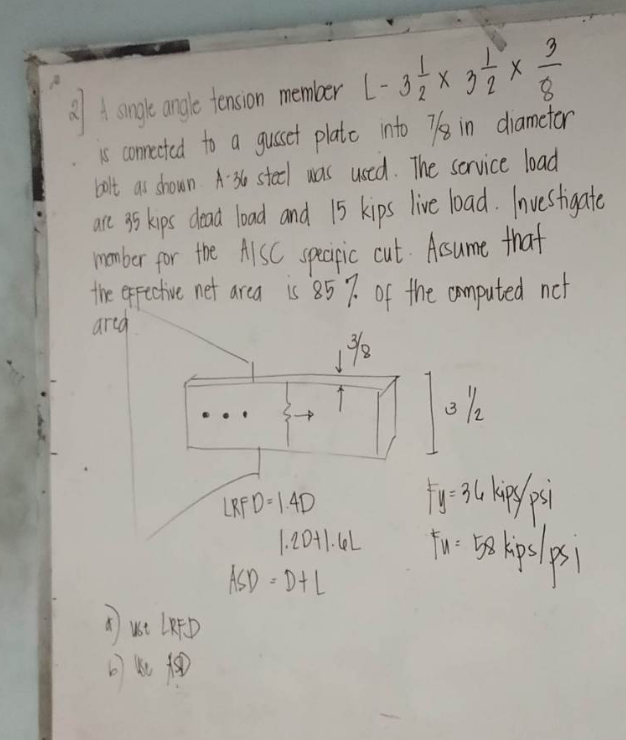 2] A single angle tension member L - 3 1/2 x 3 1/2 x 3/8
is connected to a gusset plate into 7/8 in diameter
bolt as shown. A-36 steel was used. The service load
are 35 kips dead load and 15 kips live load. Investigate
member for the AISC specific cut. Assume that
the effective net area is 85 % of the computed net
area
3/8
3 1/2
LRFD = 1.4D
Fy = 36 kips/psi
1.2D+1.6L
Fu = 58 kips/psi
ASD = D+L
a) use LRFD
b) use ASD